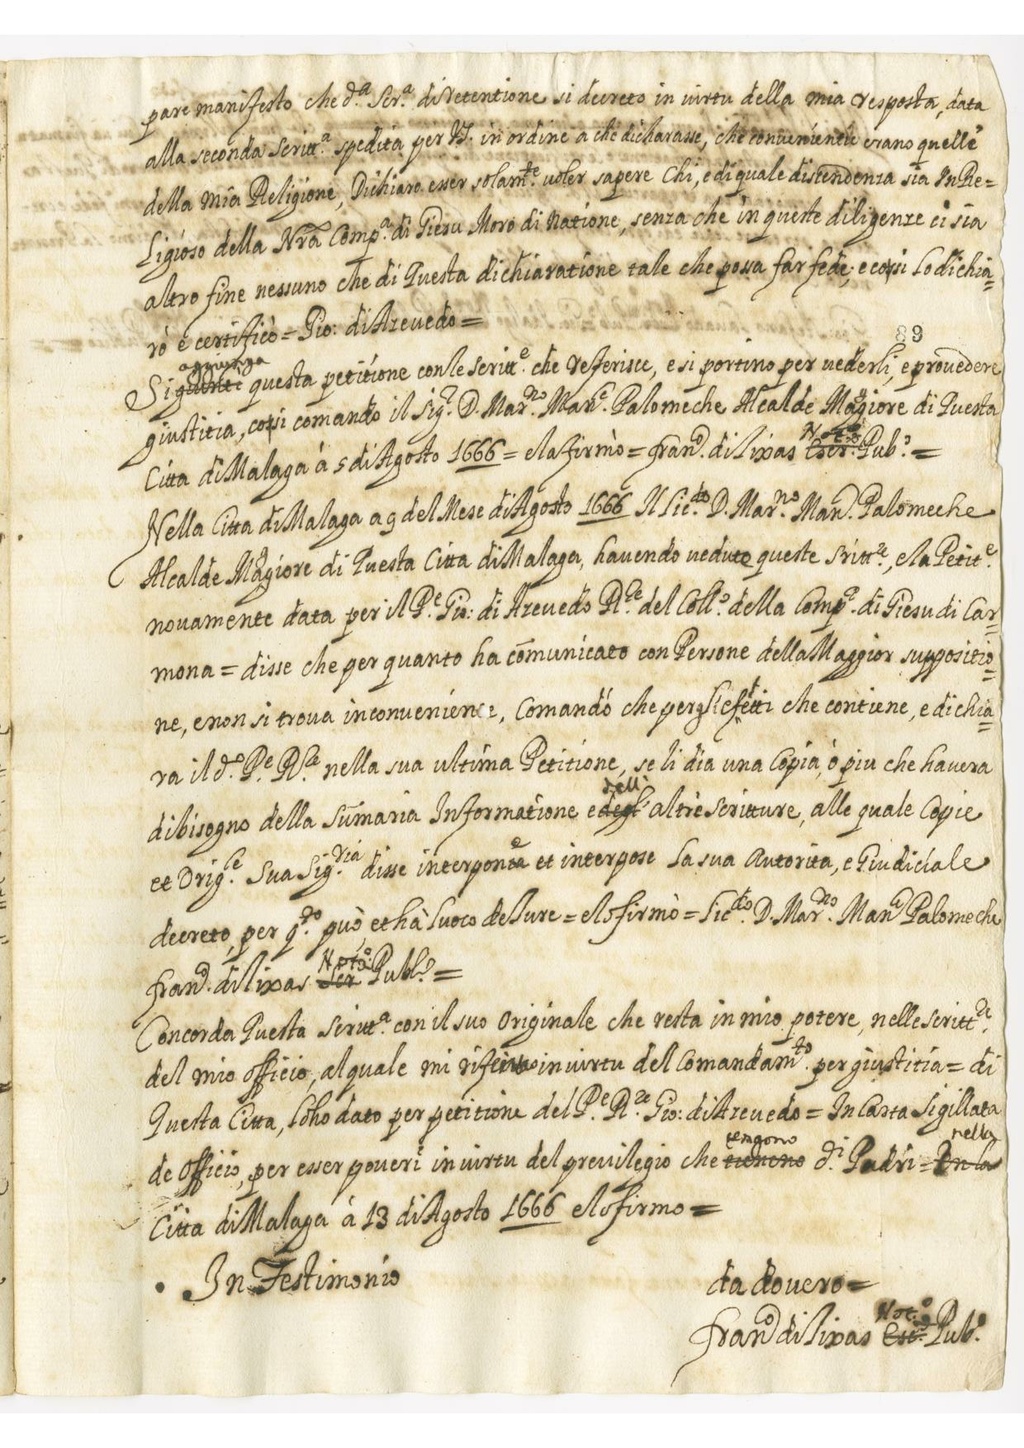 pare manifesto che d.ª Scr.ª di retentione si decreto in virtu della mia resposta, data
alla seconda Scritt.ª spedita per in ordine a che dicharasse, che convenientie erano quelle
della mia Religione, Dichiaro esser solam.te voler sapere Chi, e di quale discendenza sia In Re=
ligioso della Nrã Comp.ª di Giesu Moro di natione, senza che in queste diligenze ci sia
altro fine nessuno che di Questa dichiaratione tale che possa far fede, e cosi lo dichia=
rò e certificò = Gio: di Azevedo =
89
aggiunga
Si questa petitione con le Scritt.e che referisce, e si portino per vederli, e provedere
giustitia, cosi comando il Sig.r D. Mar.no Man.l Palomeche Alcalde Magiore di Questa
Citta di Malaga à 5 di Agosto 1666 = e la firmò = fran.º di lixas Noto Escr. Pub.º =
Nella Citta di Malaga a 9 del Mese di Agosto 1666 Il Lic.do D. Mar.no Man.l Palomeche
Alcalde Magiore di Questa Citta di Malaga, havendo veduto queste Scritt.e, e la Petit.e
novamente data per il P.e Gio: di Azevedo R.re del Coll.º della Comp.ª di Giesu di Car=
mona = disse che per quanto ha comunicato con Persone della Maggior suppositio=
ne, e non si trova inconvenience, Comandò che per gl'efetti che contiene, e dichia=
ra il d.º P.e R.re nella sua ultima Petitione, se li dia una Copia, ò piu che havera
dell'
di bisogno della Sum̃aria Informatione e degl' altre scritture, alle quale Copie
et Orig.le Sua Sig.ria disse interponea et interpose la sua autorita, e Giudiciale
decreto, per q.to può et hà luoco de Jure = e lo firmò = Lic.do D. Mar.no Man.l Palomeche
fran.º di lixas Noto Scr Publ.º =
Concorda Questa Scritt.ª con il suo Originale che resta in mio potere, nelle Scritt.re
del mio officio, al quale mi in virtu del Comandam.to per giustitia = di
Questa Citta, lo ho dato per petitione del P.e R.re Gio: di Azevedo = In Carta Sigillata
tengono nella
de officio, per esser poveri in virtu del previlegio che tieneno d.i Padri = In la
Citta di Malaga à 13 di Agosto 1666 e lo firmo =
In Testimonio da dovero =
fran.º di lixas Not.º Esc.º Pub.º